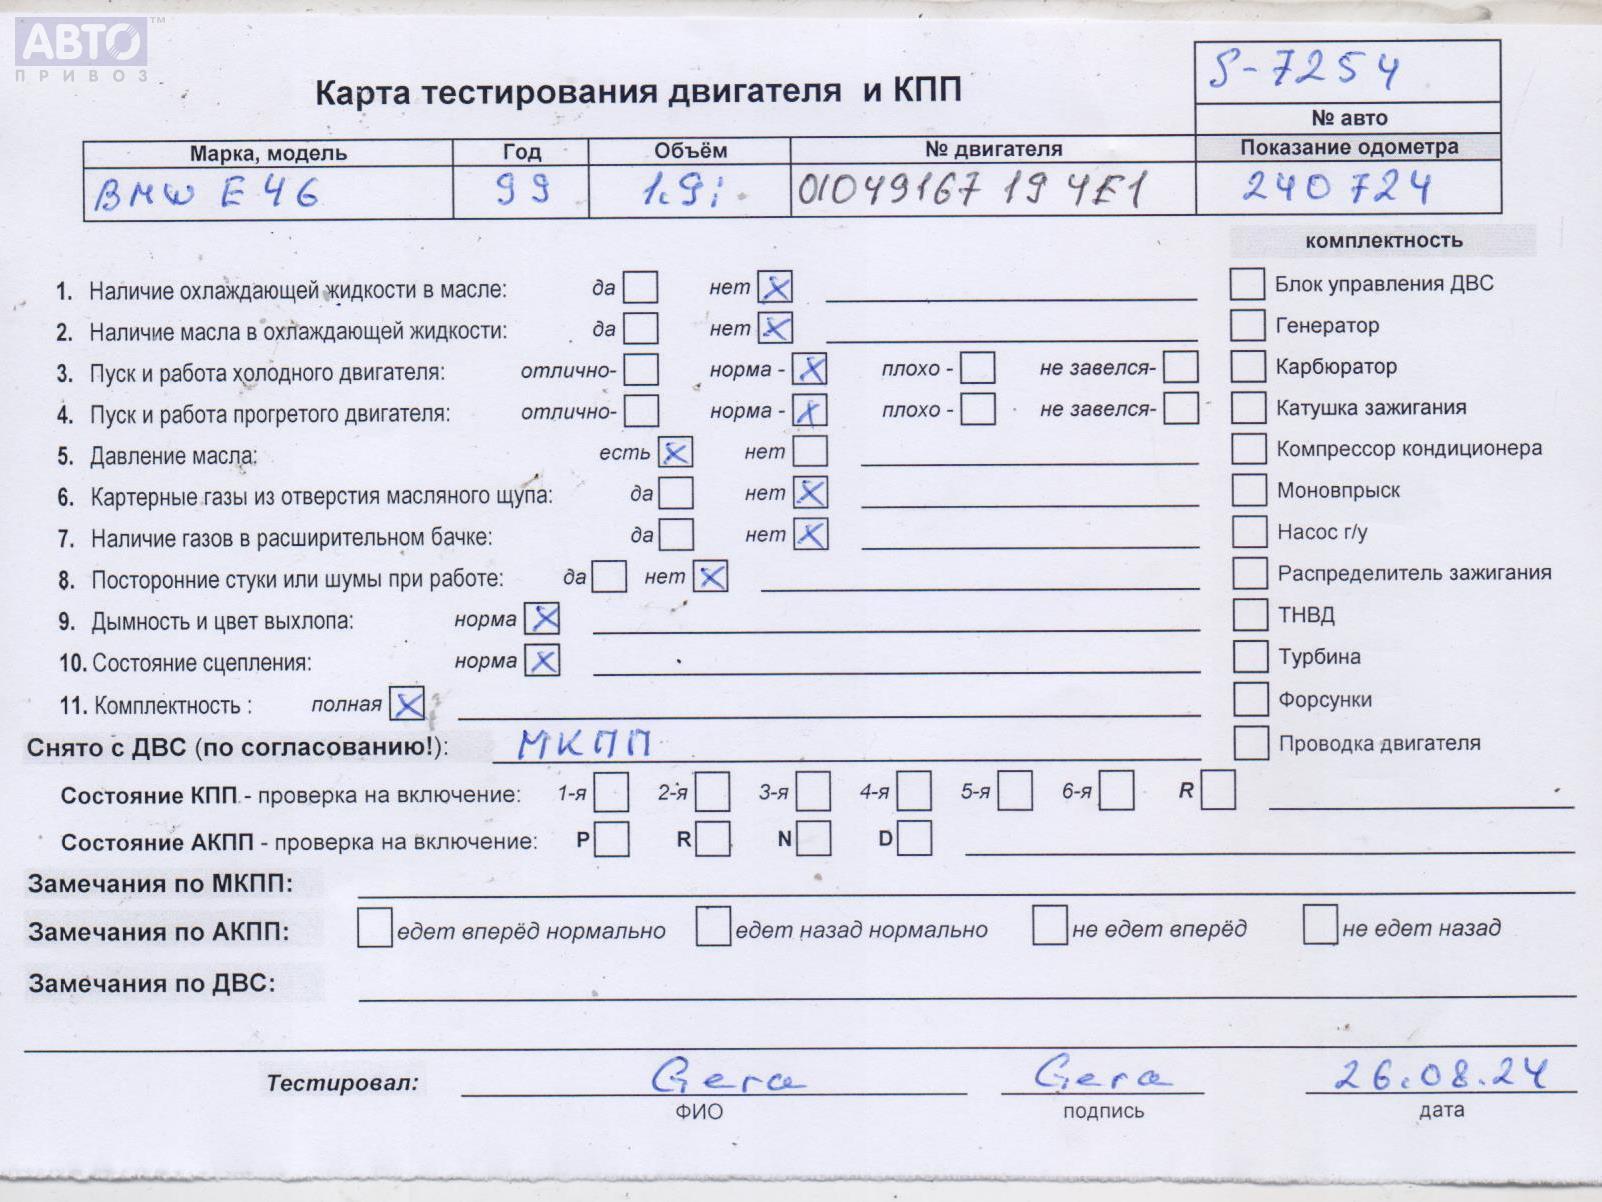 АВТО™
ПРИВОЗ
S-7254
Карта тестирования двигателя и КПП
№ авто
Марка, модель Год Объём № двигателя Показание одометра
BMW E46 99 1.9i 01049167 19 4E1 240 724
комплектность
1. Наличие охлаждающей жидкости в масле: да нет X Блок управления ДВС
2. Наличие масла в охлаждающей жидкости: да нет X Генератор
3. Пуск и работа холодного двигателя: отлично- норма - X плохо - не завелся- Карбюратор
4. Пуск и работа прогретого двигателя: отлично- норма - X плохо - не завелся- Катушка зажигания
5. Давление масла: есть X нет Компрессор кондиционера
6. Картерные газы из отверстия масляного щупа: да нет X Моновпрыск
7. Наличие газов в расширительном бачке: да нет X Насос г/у
8. Посторонние стуки или шумы при работе: да нет X Распределитель зажигания
9. Дымность и цвет выхлопа: норма X ТНВД
10. Состояние сцепления: норма X Турбина
11. Комплектность : полная X Форсунки
Снято с ДВС (по согласованию!): МКПП Проводка двигателя
Состояние КПП - проверка на включение: 1-я 2-я 3-я 4-я 5-я 6-я R
Состояние АКПП - проверка на включение: P R N D
Замечания по МКПП:
Замечания по АКПП: едет вперёд нормально едет назад нормально не едет вперёд не едет назад
Замечания по ДВС:
Тестировал: Gera Gera 26.08.24
ФИО подпись дата